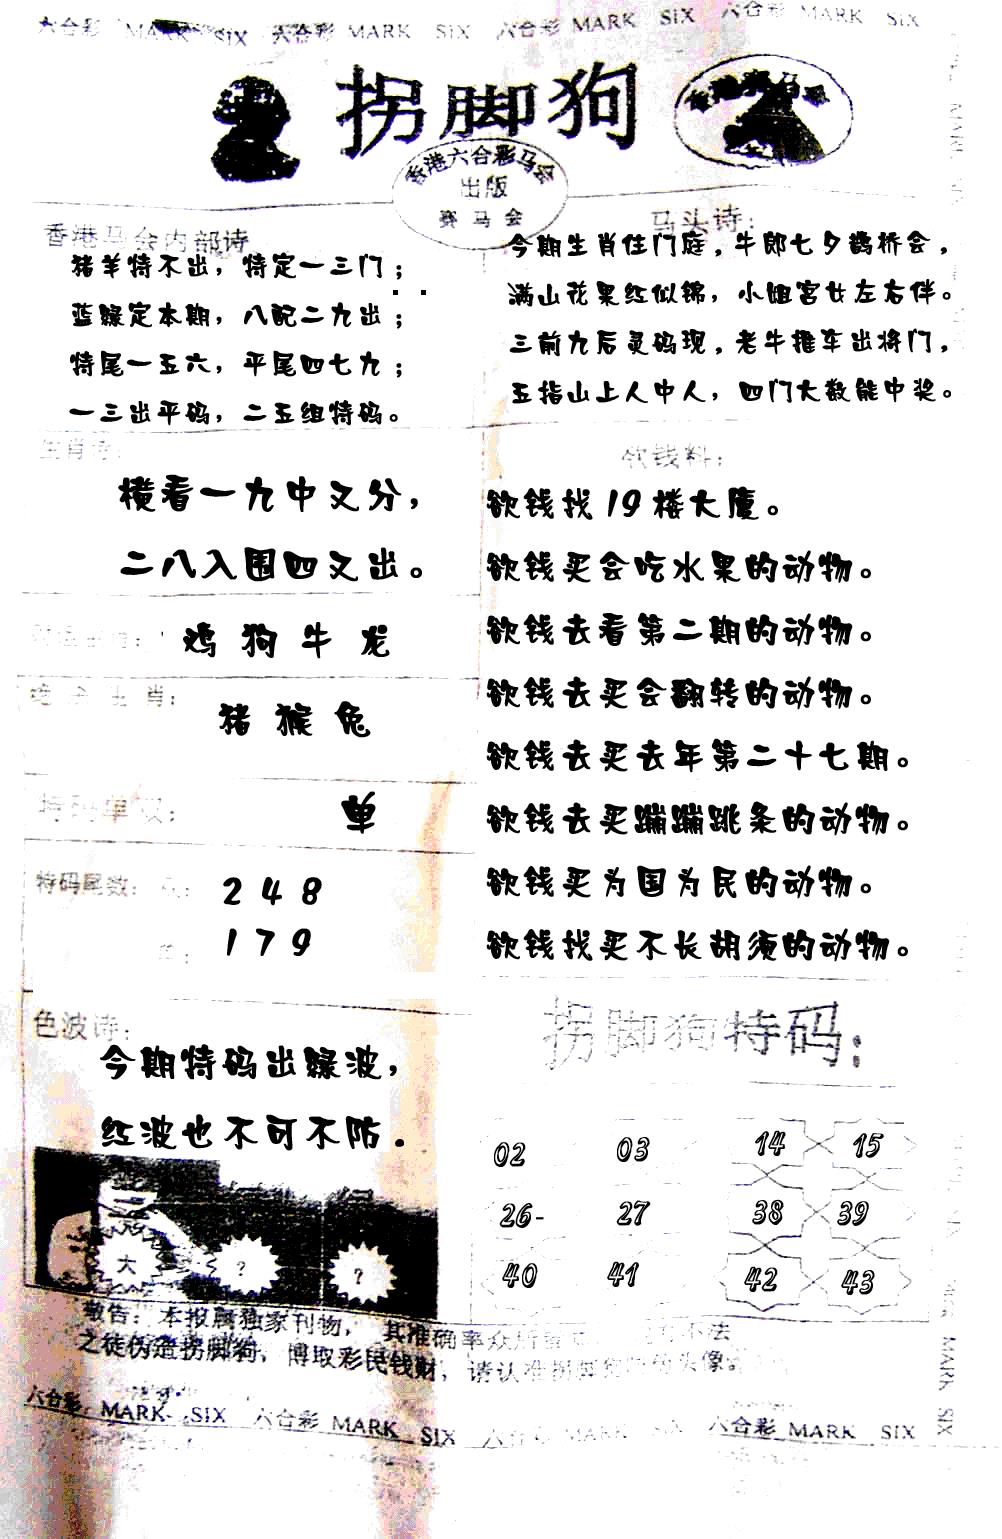 六合彩 MARK SIX 六合彩 MARK SIX 六合彩 MARK SIX 六合彩 MARK SIX
拐脚狗
香港六合彩马会
出版
赛马会
香港马会内部诗
猪羊特不出，特定一三门；
蓝绿定本期，八配二九出；
特尾一五六，平尾四七九；
一三出平码，二五组特码。
马头诗：
今期生肖住门庭，牛郎七夕鹊桥会，
满山花果红似锦，小姐宫女左右伴。
三前九后灵码现，老牛推车出将门，
五指山上人中人，四门大数能中奖。
生肖诗：
横看一九中又分，
二八入围四又出。
鸡 狗 牛 龙
生肖：
猪 猴 兔
特码单双：
单
特码尾数：
2 4 8
1 7 9
欲钱料：
欲钱找19楼大厦。
欲钱买会吃水果的动物。
欲钱去看第二期的动物。
欲钱去买会翻转的动物。
欲钱去买去年第二十七期。
欲钱去买蹦蹦跳条的动物。
欲钱买为国为民的动物。
欲钱找买不长胡须的动物。
色波诗：
今期特码出绿波，
红波也不可不防.
大 ? ?
拐脚狗特码：
02 03 14 15
26- 27 38 39
40 41 42 43
敬告：本报属独家刊物，其准确率众所 不法
之徒伪造拐脚狗，博取彩民钱财，请认准拐脚 头像
六合彩 MARK SIX 六合彩 MARK SIX 六合彩 MARK SIX 六合彩 MARK SIX
MARK SIX